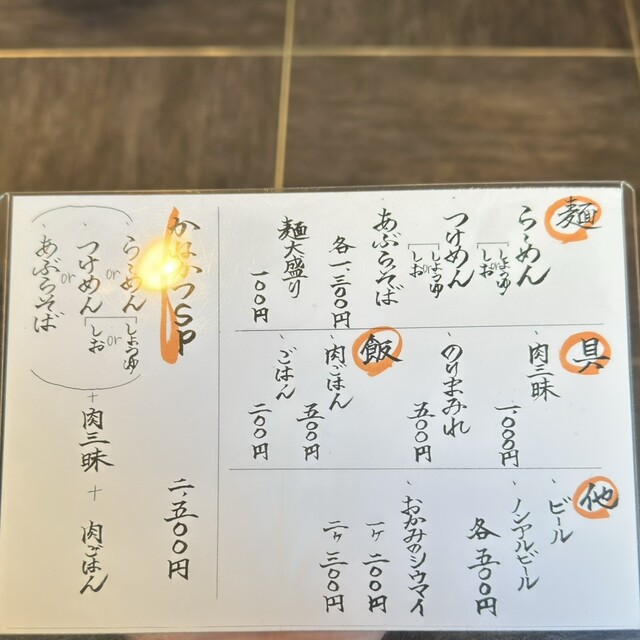 麺
らーめん
しょうゆ
or
しお
つけめん
しょうゆ
or
しお
あぶらそば
各一、三〇〇円
麺大盛り
一〇〇円
具
、肉三昧
一、〇〇〇円
、のりまみれ
五〇〇円
飯
、肉ごはん
五〇〇円
、ごはん
二〇〇円
他
、ビール
、ノンアルビール
各五〇〇円
、おかみのシウマイ
一ヶ二〇〇円
二ヶ三〇〇円
かなかつSP
、らーめん
or
しょうゆ
or
しお
、つけめん
or
、あぶらそば
+
肉三昧
+
肉ごはん
二、五〇〇円